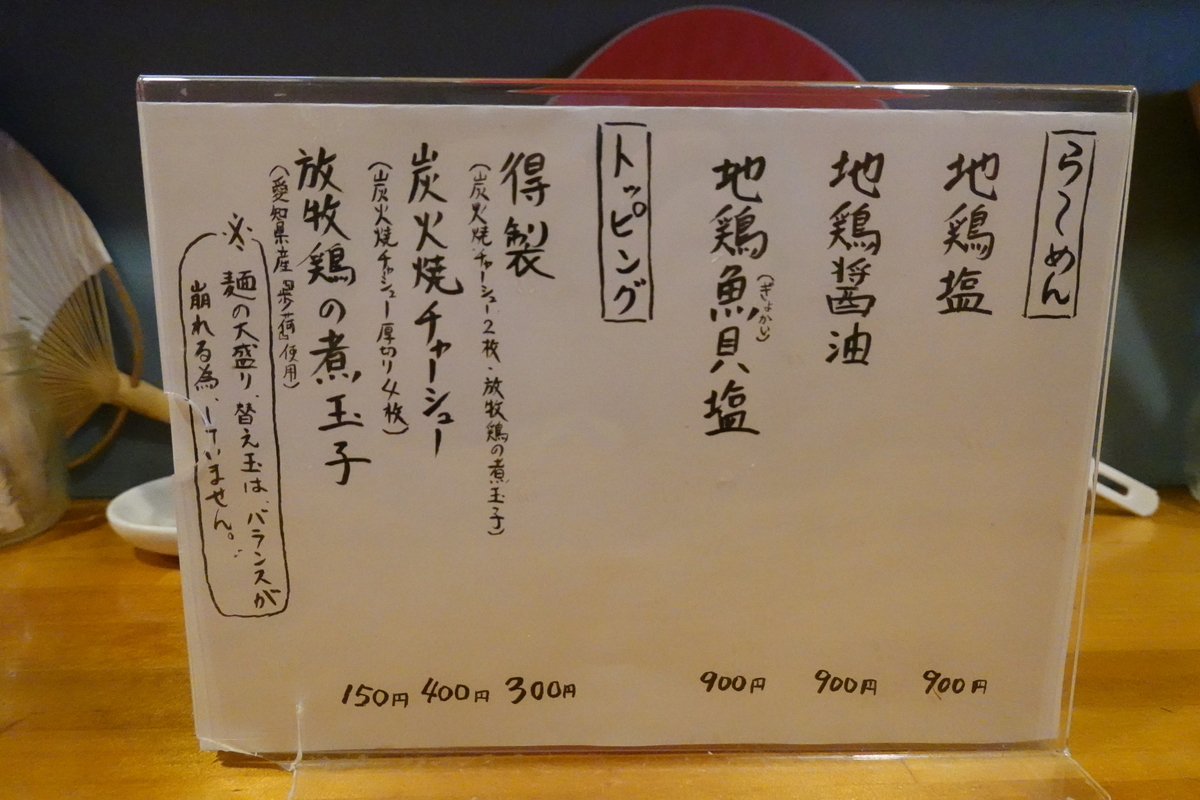 ら〜めん
地鶏塩 900円
地鶏醤油 900円
地鶏魚貝塩 900円
(ぎょかい)
トッピング
得製 300円
(炭火焼チャーシュー2枚・放牧鶏の煮玉子)
炭火焼チャーシュー 400円
(炭火焼チャーシュー厚切り4枚)
放牧鶏の煮玉子 150円
(愛知県産 使用)
※麺の大盛り、替え玉は、バランスが
崩れる為、していません。